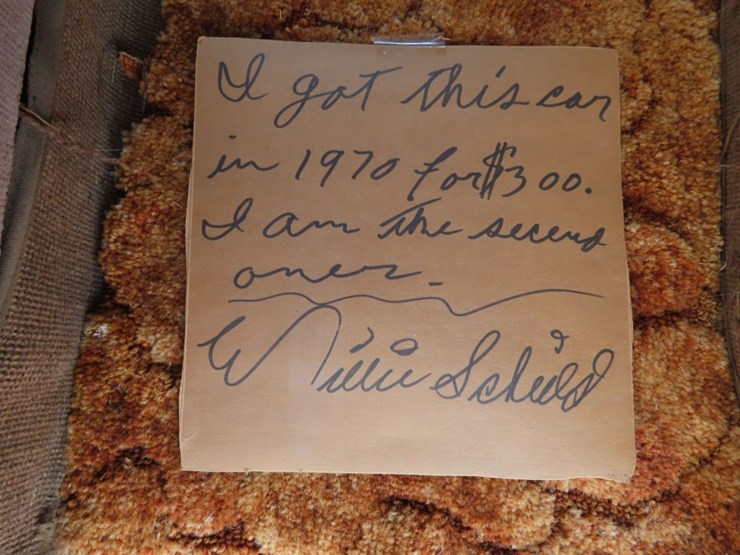 I got this car
in 1970 for $300.
I am the second
oner.
Willie Schild